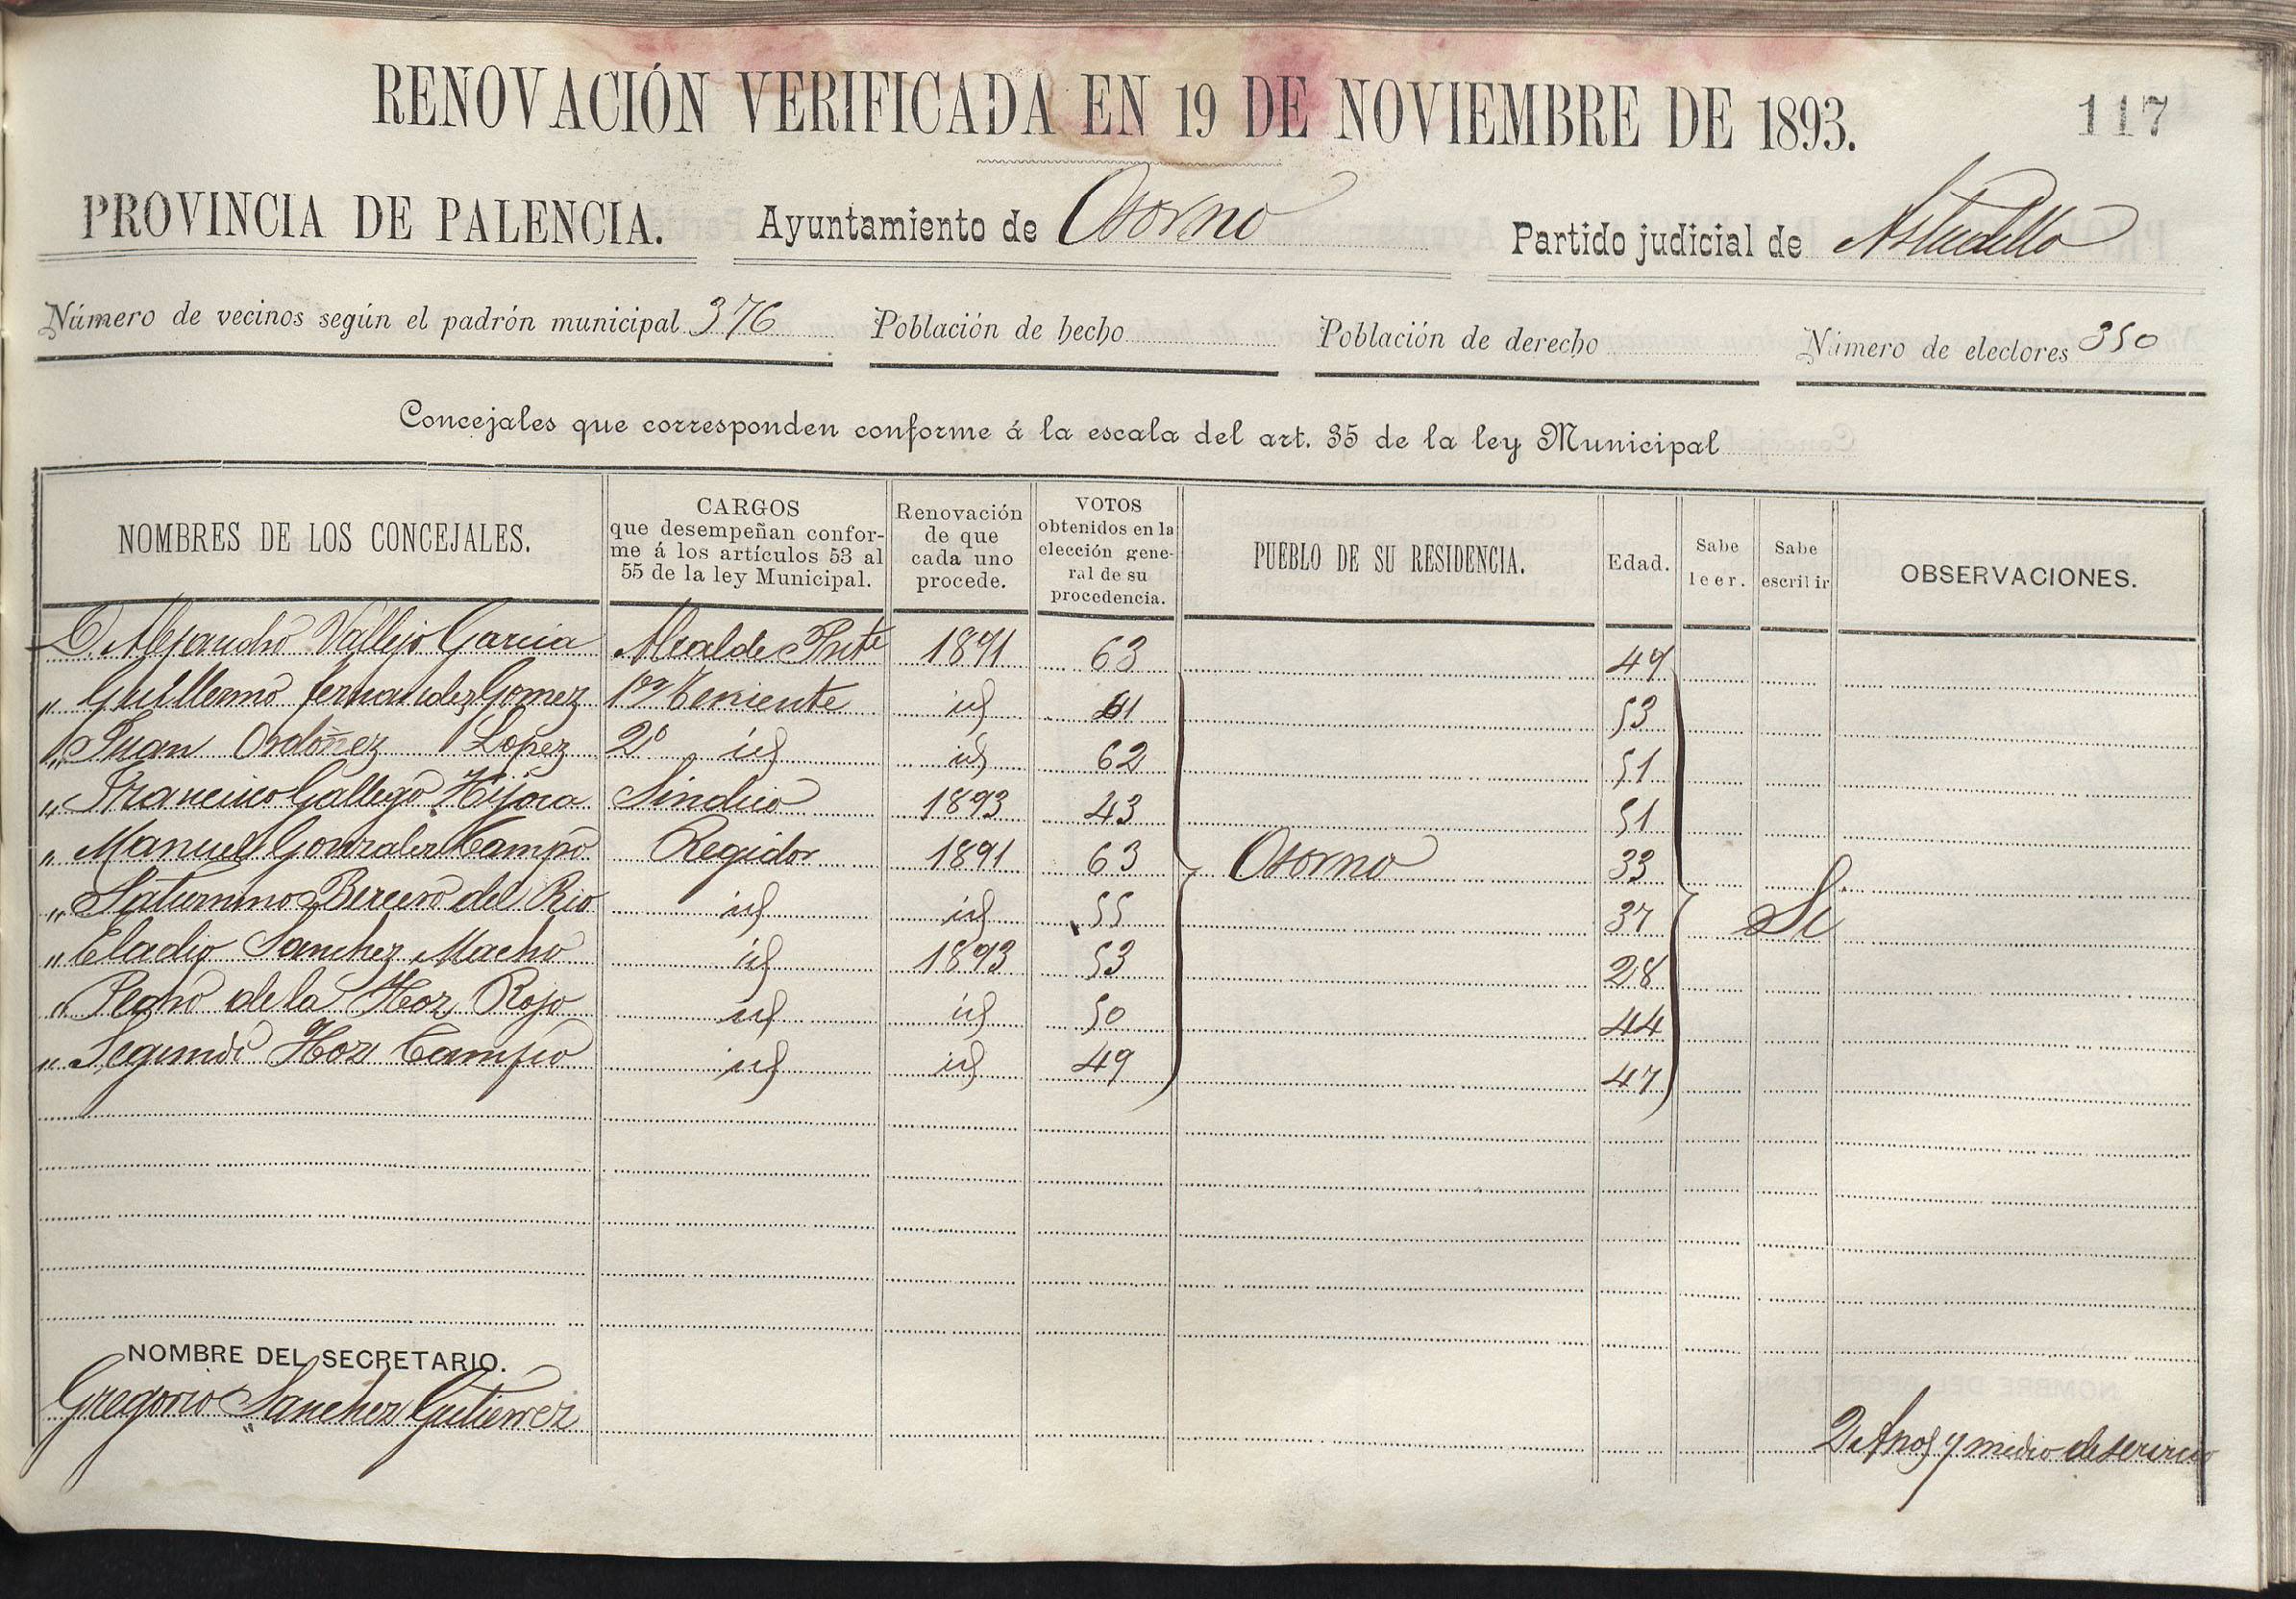 RENOVACIÓN VERIFICADA EN 19 DE NOVIEMBRE DE 1893.
117
PROVINCIA DE PALENCIA. Ayuntamiento de Osorno Partido judicial de Astudillo
Número de vecinos según el padrón municipal 376 Población de hecho Población de derecho Número de electores 350
Concejales que corresponden conforme á la escala del art. 35 de la ley Municipal
NOMBRES DE LOS CONCEJALES. CARGOS que desempeñan conforme á los artículos 53 al 55 de la ley Municipal. Renovación de que cada uno procede. VOTOS obtenidos en la elección general de su procedencia. PUEBLO DE SU RESIDENCIA. Edad. Sabe leer. Sabe escribir OBSERVACIONES.
D. Alejandro Vallejo Garcia Alcalde Pnte 1891 63 49
" Guillermo fernandez Gomez 1er Teniente id 61 53
" Juan Ordoñez Lopez 2º id id 62 51
" Francisco Gallego Hijosa Sindico 1893 43 51
" Manuel Gonzalez Campo Regidor 1891 63 Osorno 33
" Saturnino Bercero del Rio id id 55 37 Si
" Eladio Sanchez Macho id 1893 53 28
" Pedro de la Hoz Rojo id id 50 44
" Segundo Hoz Campo id id 49 47
NOMBRE DEL SECRETARIO.
Gregorio Sanchez Gutierrez 2 Años y medio de servicio